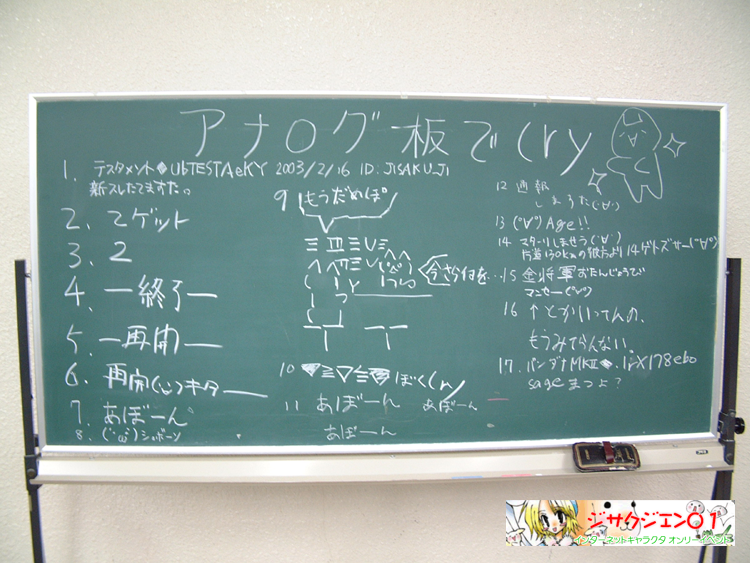 アナログ板で(ry
1. テスタメント◆UbTESTAeKY 2003/2/16 ID:JISAKUJI
新スレたてますた。
2. 2ゲット
3. 2
4. ー終了ー
5. ー再開ー
6. 再開(・∀・)キター
7. あぼーん
8. (´・ω・`)ショボーン
9 もうだめぽ
今さら何を…
10 ▽≡▽≦▽ ぼく(ry
11 あぼーん あぼーん
あぼーん
12 通報
しますた(´∀`)
13 (゚∀゚)Age!!
14 マターリしませう(´∀`)
片道130kmの彼方より14ゲトズサー(゚∀゚)
15 金将軍おたんじょうびで
マンセー(゚∀゚)
16 ↑とかいってんの、
もうみてらんない。
17. バンダナMKII◆.1rX178ebo
sageまつよ?
ジサクジエン01
インターネットキャラクタ オンリーイベント